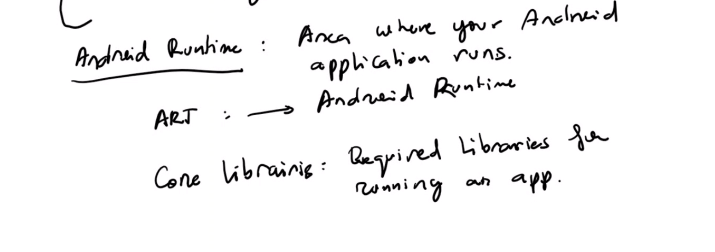 Android Runtime : Area where your Android
application runs.
ART : → Android Runtime
Core Librairis : Required Libraries for
running an app.